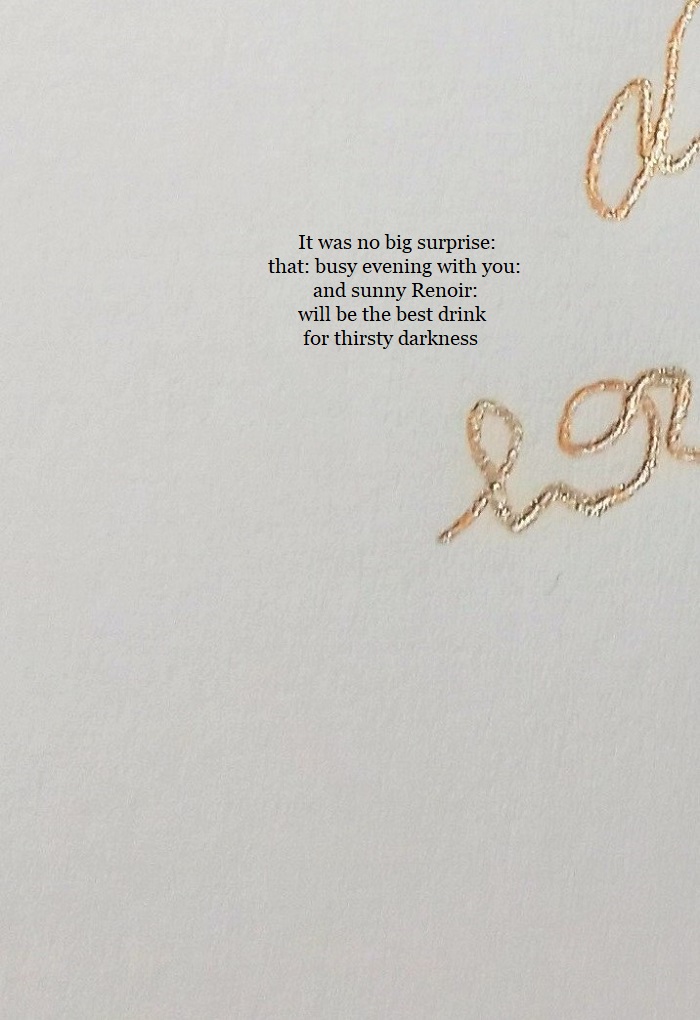 It was no big surprise:
that: busy evening with you:
and sunny Renoir:
will be the best drink
for thirsty darkness